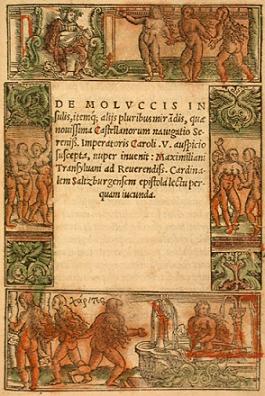 DE MOLVCCIS IN
sulis, itemq; alijs pluribus mirādis, quæ
novissima Castellanorum navigatio Se-
reniss. Imperatoris Caroli .V. auspicio
suscepta, nuper invenit: Maximiliani
Transylvani ad Reverendiss. Cardina-
lem Saltzburgensem epistola lectu per-
quam iucunda.